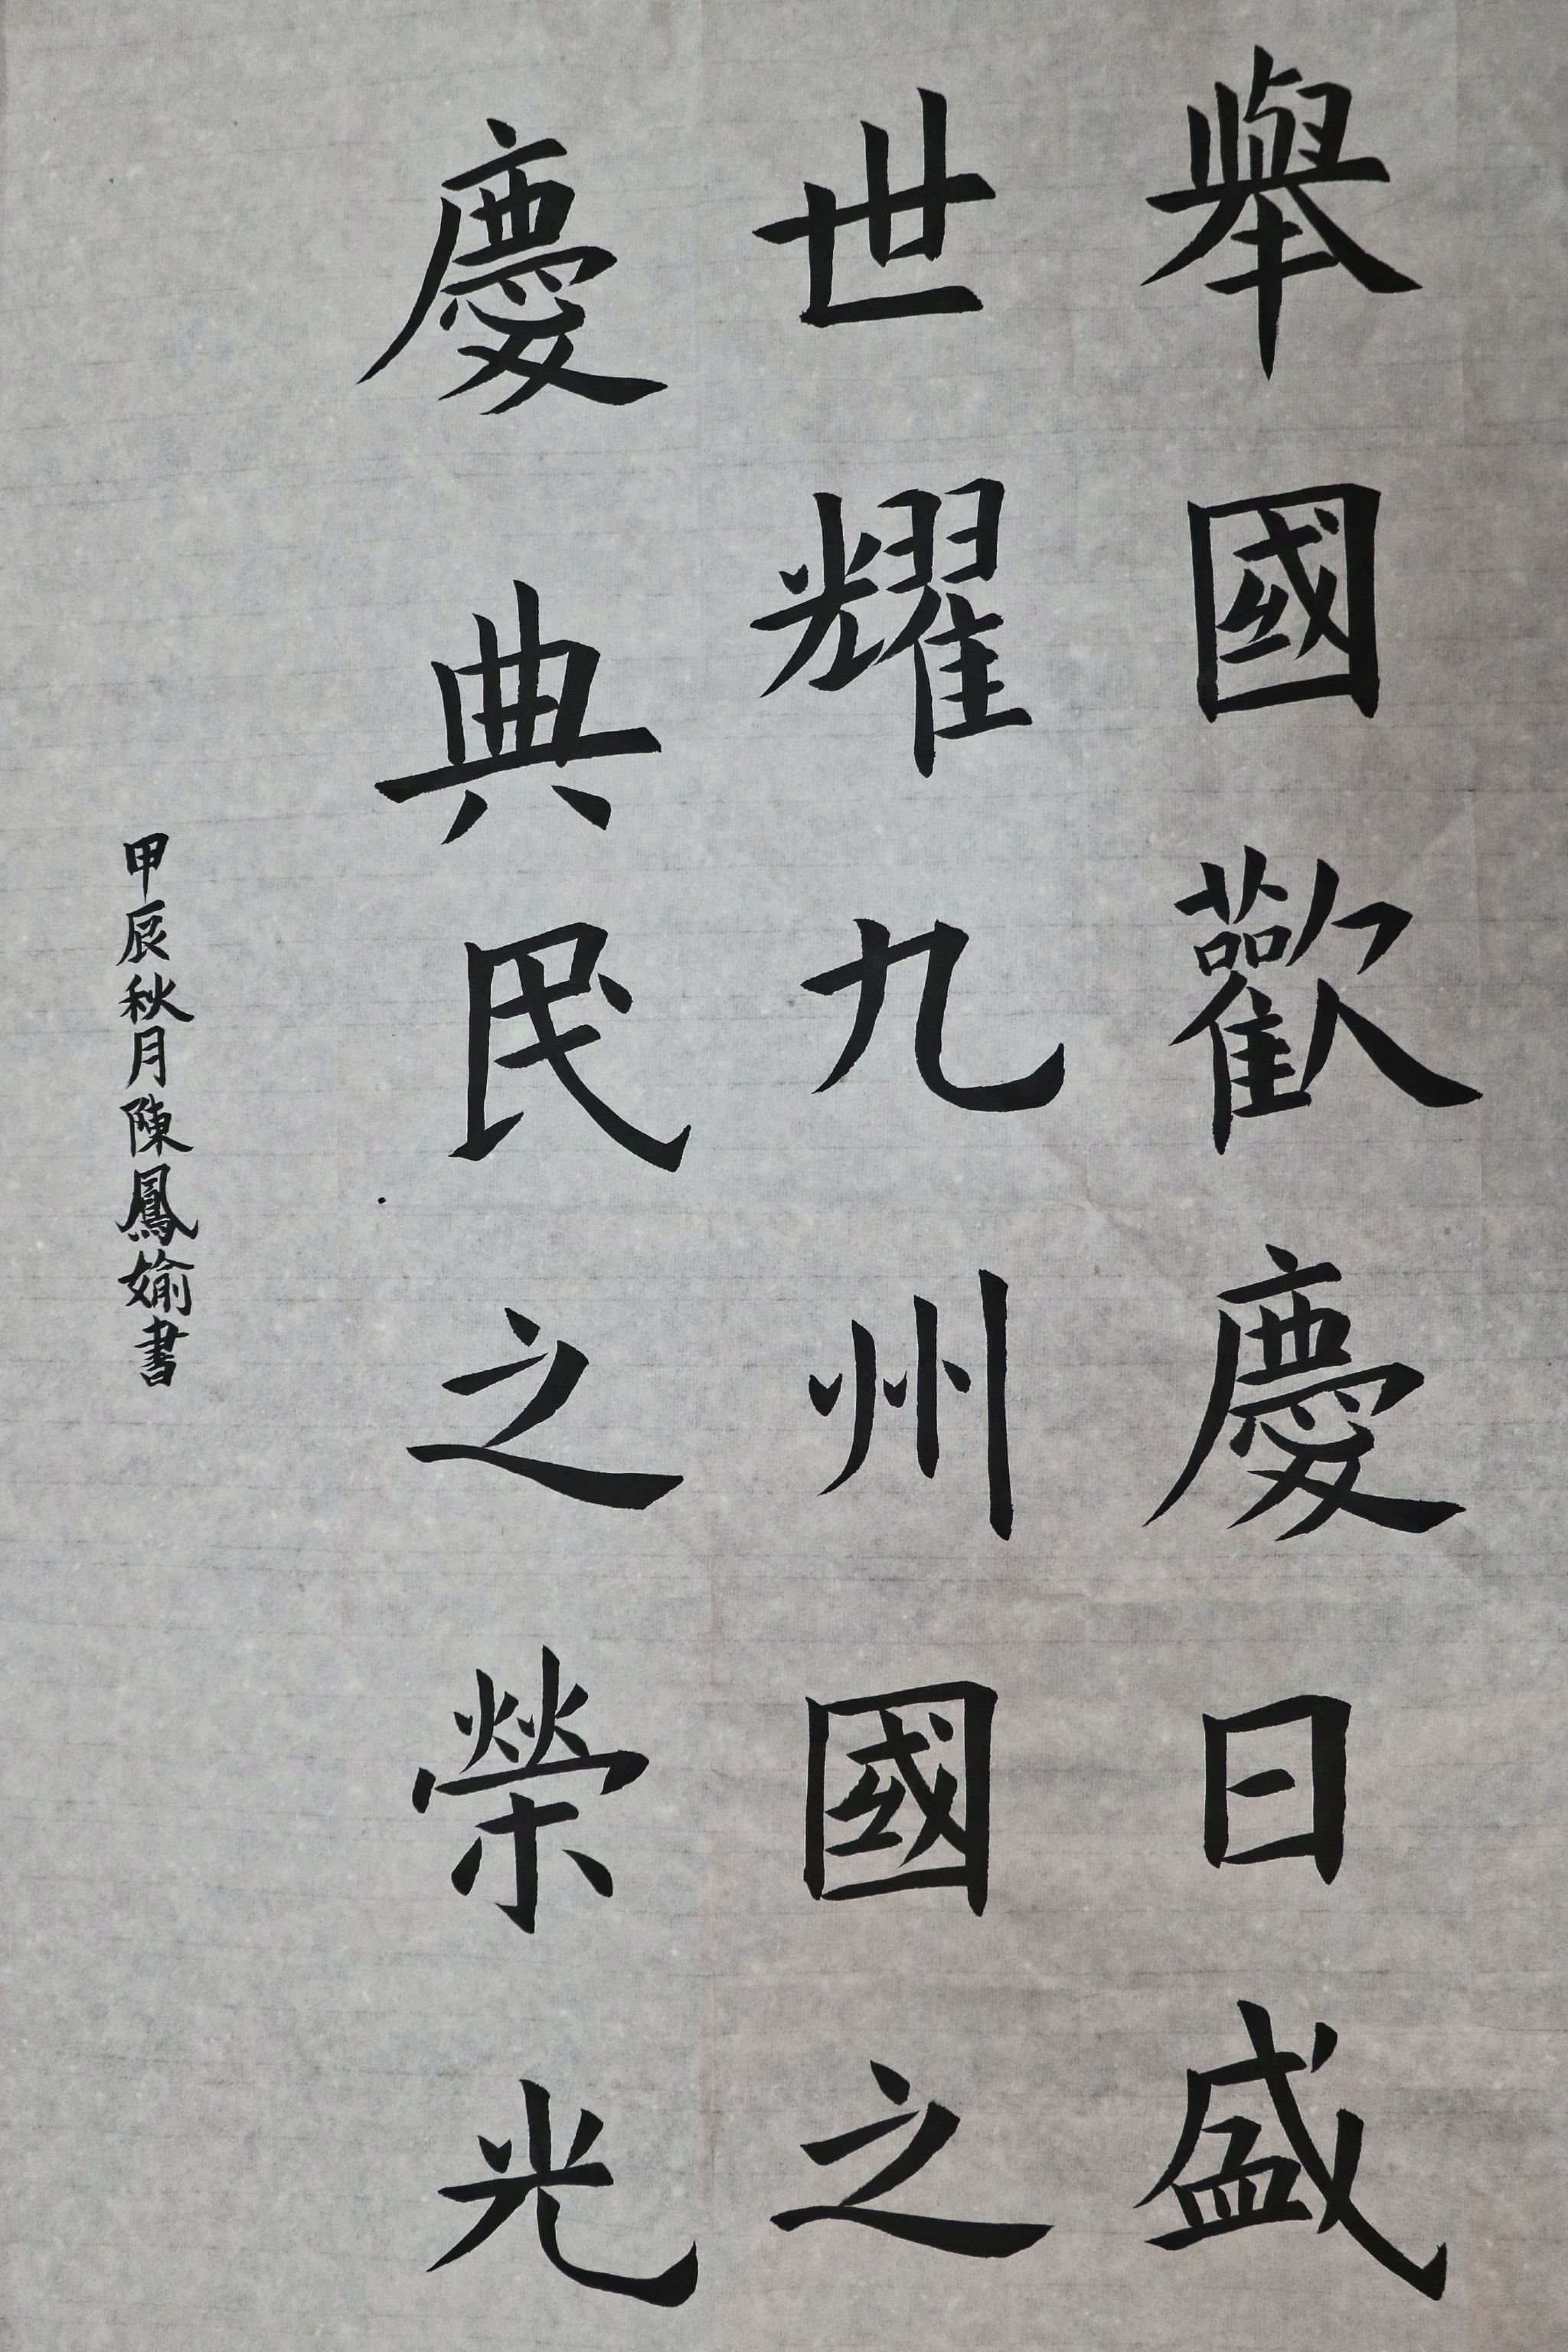 舉國歡慶日盛
世耀九州國之
慶典民之榮光
甲辰秋月陳鳳媮書